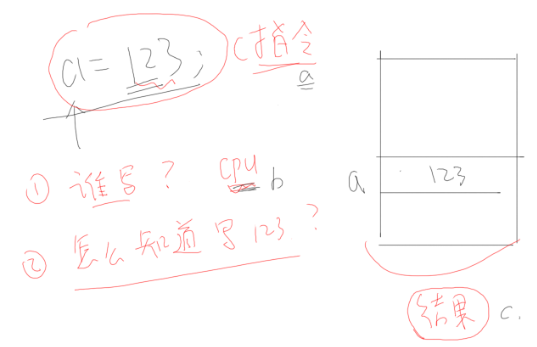 a = 123; C指令
a
① 谁写? cpu b
② 怎么知道写123?
a 123
结果 c.